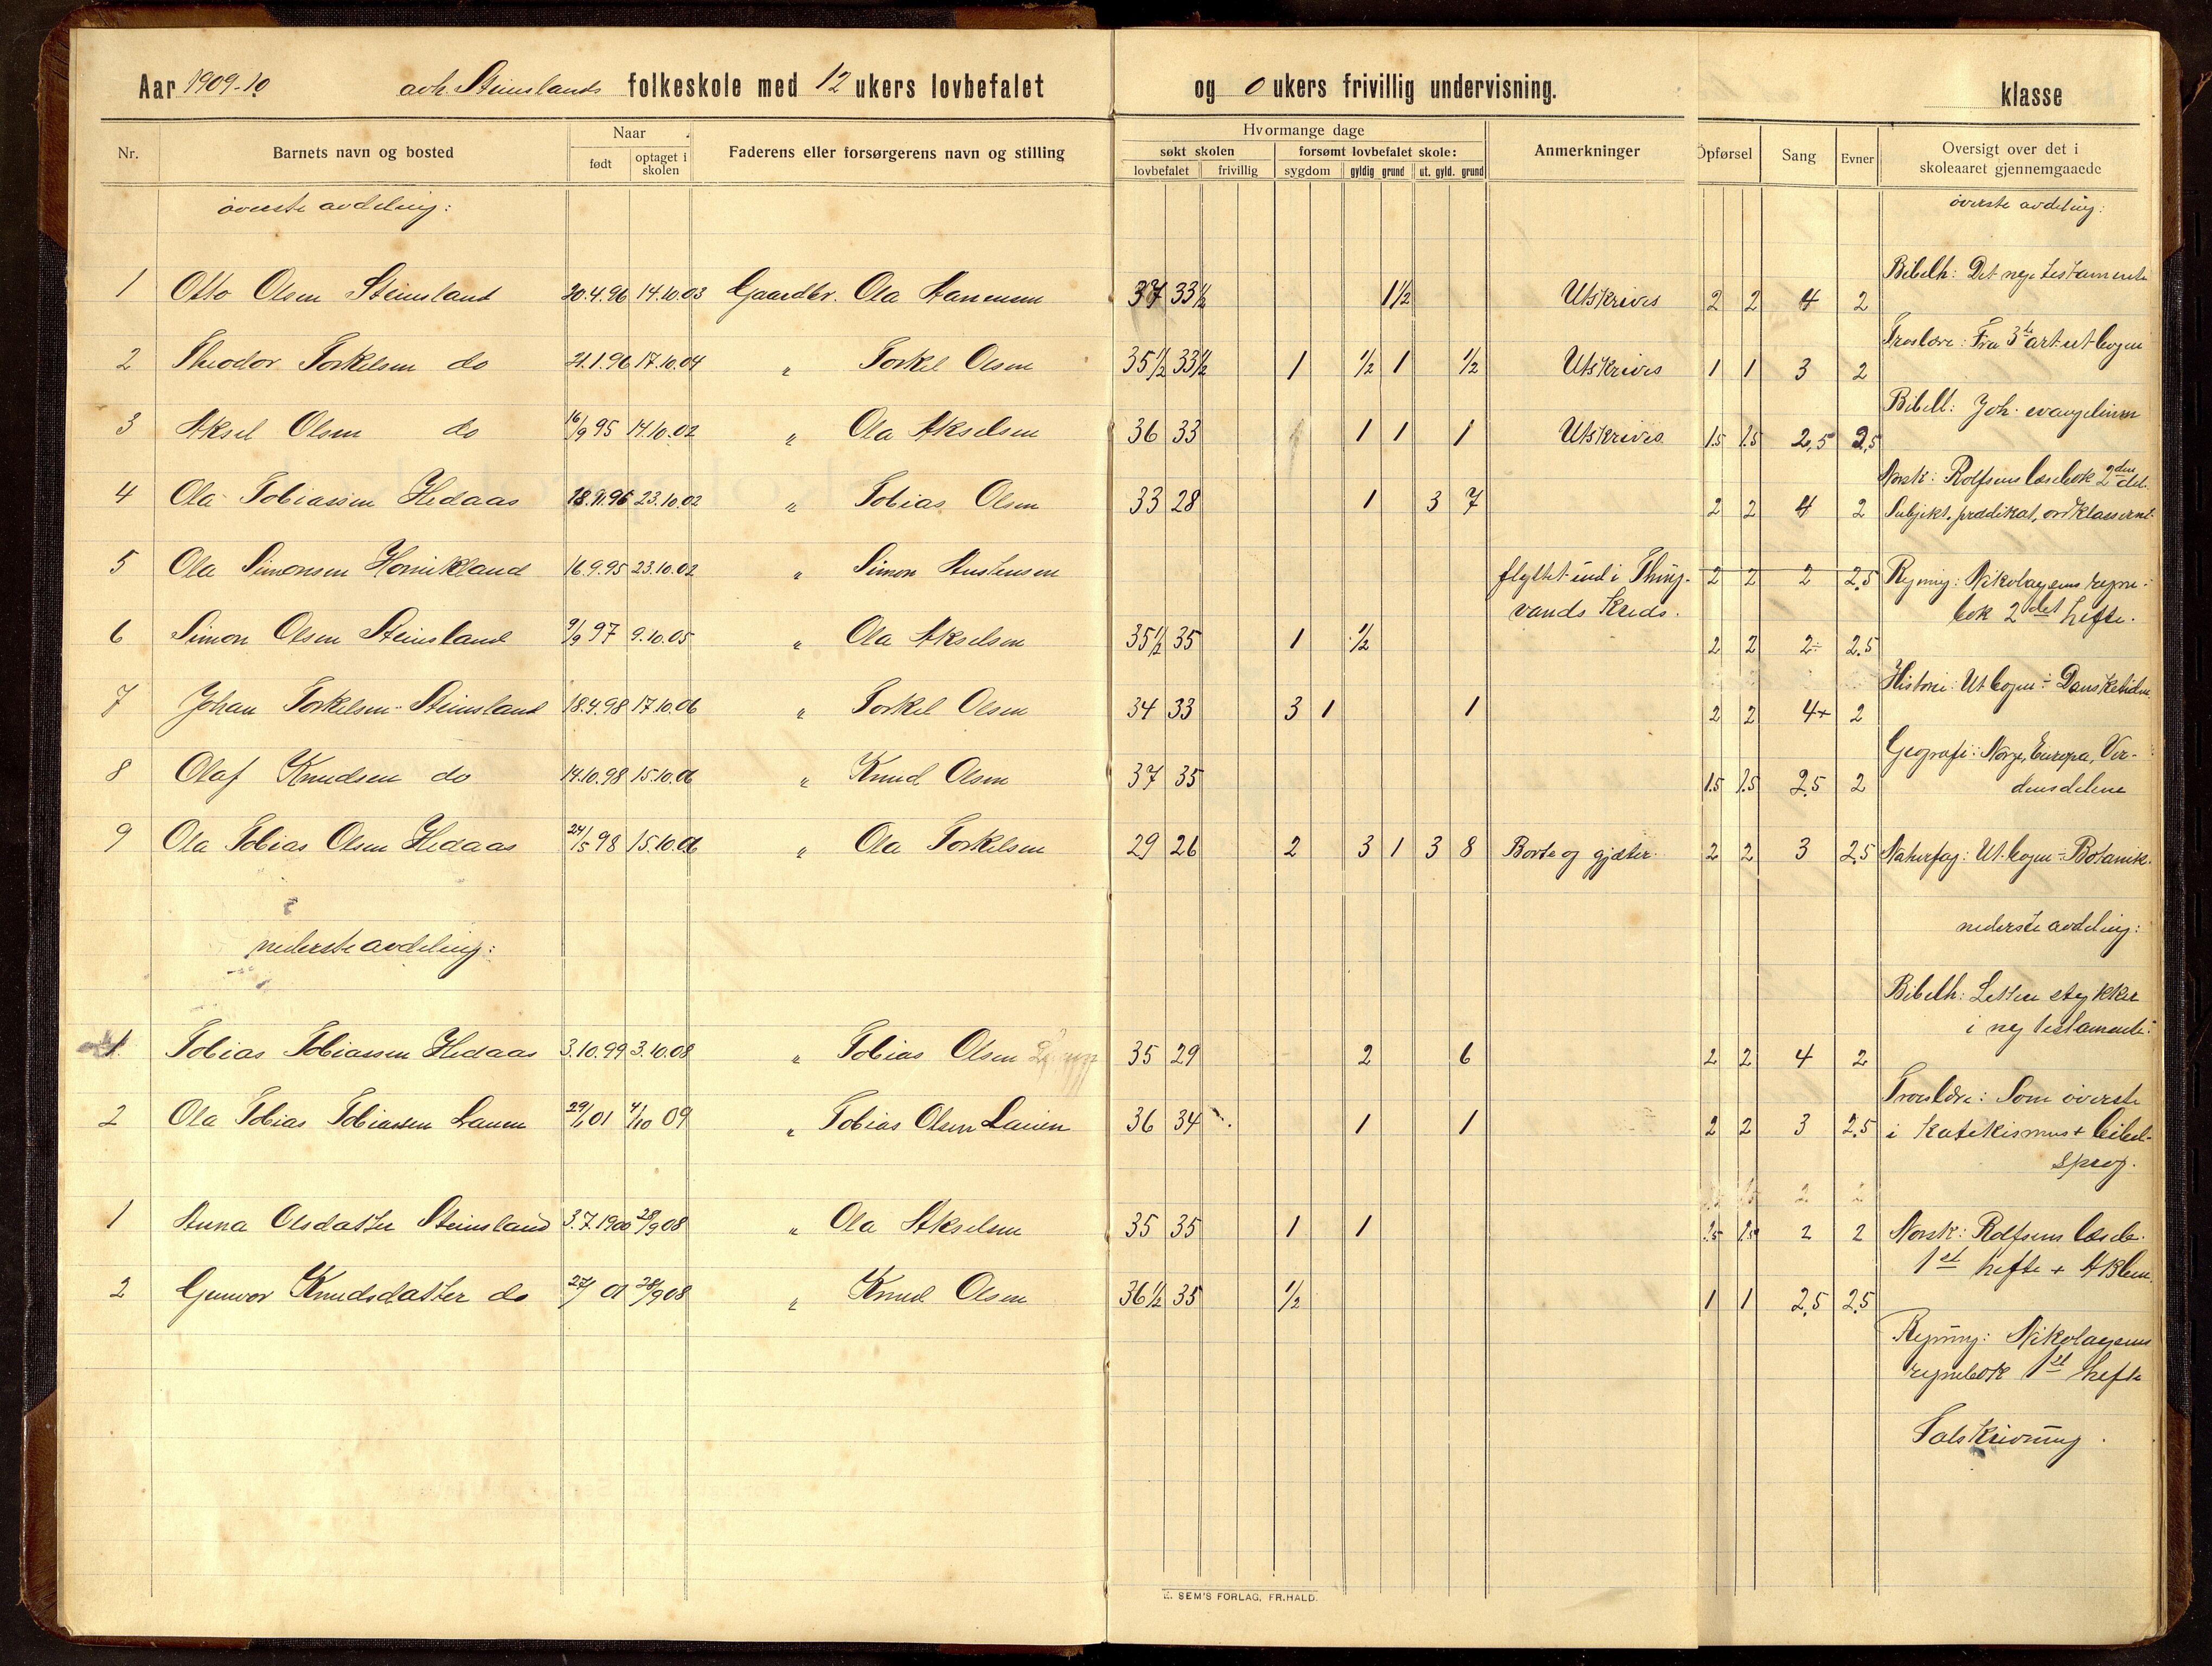 Aar 1909-10 Steinslands folkeskole med 12 ukers lovbefalet og 0 ukers frivillig undervisning. klasse
Nr. Barnets navn og bosted Naar født optaget i skolen Faderens eller forsørgerens navn og stilling
Hvormange dage
søkt skolen forsømt lovbefalet skole:
lovbefalet frivillig sygdom gyldig grund ut. gyld. grund
Anmerkninger Opførsel Sang Evner Oversigt over det i skoleaaret gjennemgaaede
øverste avdeling:
1 Otto Olsen Steinsland 20.4.96 14.10.03 Gaardbr. Ola 37 33½ 1½ Utskrives 2 2 4 2
2 Theodor Torkelsen do 21.1.96 17.10.04 " Torkel Olsen 35½ 33½ 1 ½ 1 ½ Utskrives 1 1 3 2
3 Aksel Olsen do 16/9 95 14.10.02 " Ola Akselsen 36 33 1 1 1 Utskrives 1.5 1.5 2,5 2,5
4 Ola Tobiassen Hedaas 23.10.02 " Tobias Olsen 33 28 1 3 7 2 2 4 2
5 Ola Simonsen 16.9.95 23.10.02 " Simon flyttet ind i Thing-
vands Kreds. 2 2 2 2.5
6 Simon Olsen Steinsland 9/9 97 9.10.05 " Ola Akselsen 35½ 35 1 ½ 2 2 2÷ 2.5
7 Johan Torkelsen Steinsland 18.4.98 17.10.06 " Torkel Olsen 34 33 3 1 1 2 2 4+ 2
8 Olaf Knudsen do 14.10.98 15.10.06 " Knud Olsen 37 35 1.5 1.5 2.5 2
9 Ola Tobias Olsen Hedaas 24/5 98 15.10.06 " Ola Torkelsen 29 26 2 3 1 3 8 Borte og gjæter. 2 2 3 2.5
nederste avdeling:
1 Tobias Tobiassen Hedaas 3.10.99 3.10.08 " Tobias Olsen 35 29 2 6 2 2 4 2
2 Ola Tobias Tobiassen Lauen 29/1 01 4/10 09 " Tobias Olsen Lauen 36 34 1 1 2 2 3 2.5
1 Anna Olsdatter Steinsland 3.7.1900 28/9 08 " Ola Akselsen 35 35 1 1 2 2
2 Gunvor Knudsdatter do 28/9 08 " Knud Olsen 36½ 35 ½ 1 1 2.5 2.5
øverste avdeling:
Bibelh: Det nye testamente
Troslære: Fra 3die art. ut bogen
Bibell: Joh. evangelium
Norsk: Rolfsens læsebok 2den del.
Subjekt, prædikat, ordklasserne.
Regning: Nikolaysens regne-
bok 2det hefte.
Historie: Ut bogen ÷ Dansketiden
Geografi: Norge, Europa, Ver-
densdelene
Naturfag: Ut bogen ÷ Botanik.
nederste avdeling:
Bibelh: Lettere stykker
i nytestamente.
Troslære: Som øverste
i Katekismus + bibel-
sprog.
Norsk: Rolfsens læseb.
1st hefte +
Regning: Nikolaysens
regnebok 1st hefte
Talskrivning.
E. SEM'S FORLAG, FR.HALD.